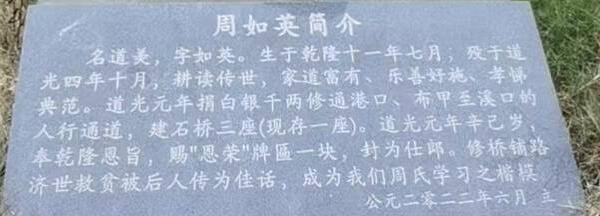 周如英简介
名道美，字如英。生于乾隆十一年七月；殁于道
光四年十月，耕读传世，家道富有、乐善好施、孝悌
典范。道光元年捐白银千两修通港口、布甲至溪口的
人行通道，建石桥三座(现存一座)。道光元年辛巳岁、
奉乾隆恩旨，赐"恩荣"牌匾一块，封为仕郎。修桥铺路
济世救贫被后人传为佳话，成为我们周氏学习之楷模
公元二零二二年六月 立